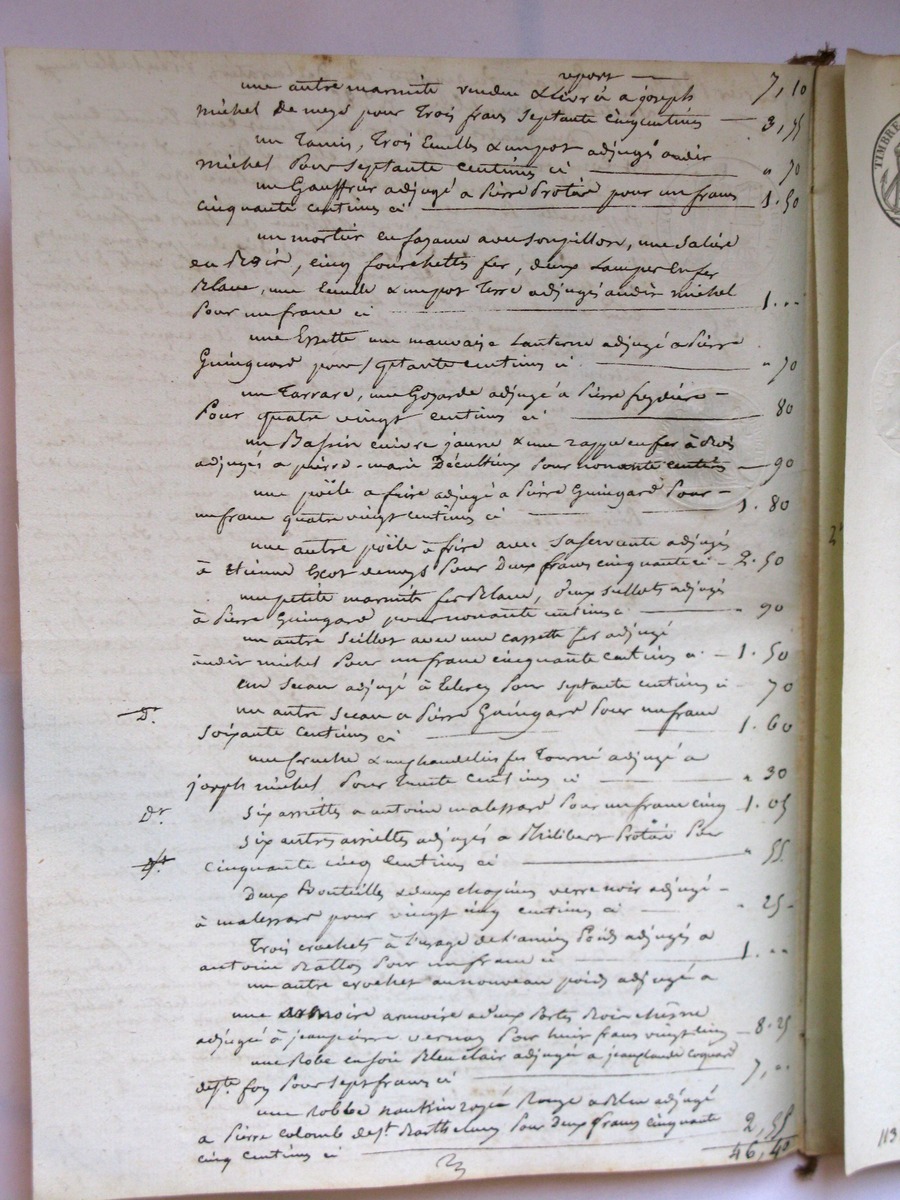 report — 7,10
une autre marmite vendue & livrée a joseph
michel De meys pour Trois francs Septante cinq centimes — 3,75
un Tamis, Trois Ecuelles & un pot adjugés audit
michel Pour Septante centimes ci — " 70
un Gauffrier adjugé a Pierre Protière pour un franc
cinquante centimes ci — 1.50
un mortier en fayance avec son pillon, une Saliere
en Bois, cinq fourchettes fer, deux Lampes En fer
Blanc, une Ecuelle & un pot Terre adjugés audit michel
Pour un franc ci — 1. "
une Essette une mauvaise Lanterne adjugé a Pierre
Guingard pour Septante centimes ci — " 70
un Tarrare, une Goyarde adjugé a Pierre freydière —
Pour quatre vingt centimes ci — 80
un Bassin cuivre jaune & une rappe en fer à Bois
adjugés a pierre-marie Décultieux Pour nonante centimes — 90
une poële a frire adjugé a Pierre Guingard Pour —
un franc quatre vingt centimes ci — 1.80
une autre poële à frire avec Sa Servante adjugés
à Etienne Escot de meys Pour Deux francs cinquante ci — 2.50
une petite marmite fer Blanc, deux Seillots adjugés
à Pierre Guingard pour nonante centimes ci — " 90
un autre Seillot avec une cassette fer adjugé
audit michel Pour un franc cinquante centimes ci — 1.50
un Seau adjugé à Pour Septante centimes ci — 70
Dt. un autre Seau a Pierre Guingard Pour un franc
Soixante centimes ci — 1.60
une & un chandelier fer Tourné adjugé a
joseph michel Pour trente centimes ci — " 30
Dt. Six assiettes a antoine malessard Pour un franc cinq — 1.05
Six autres assiettes adjugés a Philibert Protière Pour
Dt. cinquante cinq centimes ci — " 55
Deux Bouteilles & deux chopines verre noir adjugé —
à malessard pour vingt cinq centimes ci — " 25
Trois crochets à l'usage de l'ancien Poids adjugés a
antoine Pour un franc ci — 1. "
un autre crochet au nouveau poids adjugé a
une armoire a deux Portes Bois chêne
adjugée à jean pierre vernay Pour huit francs vingt cinq — 8.25
une Robe en Soie Bleu clair adjugée a jean claude Coquard
de Ste foy Pour Sept francs ci — 7, "
une Robbe nankin rayé Rouge & Bleu adjugé
a Pierre colomb de St Barthelemy Pour deux francs cinquante
cinq centimes ci — 2,55
46,40
TIMBRE
113